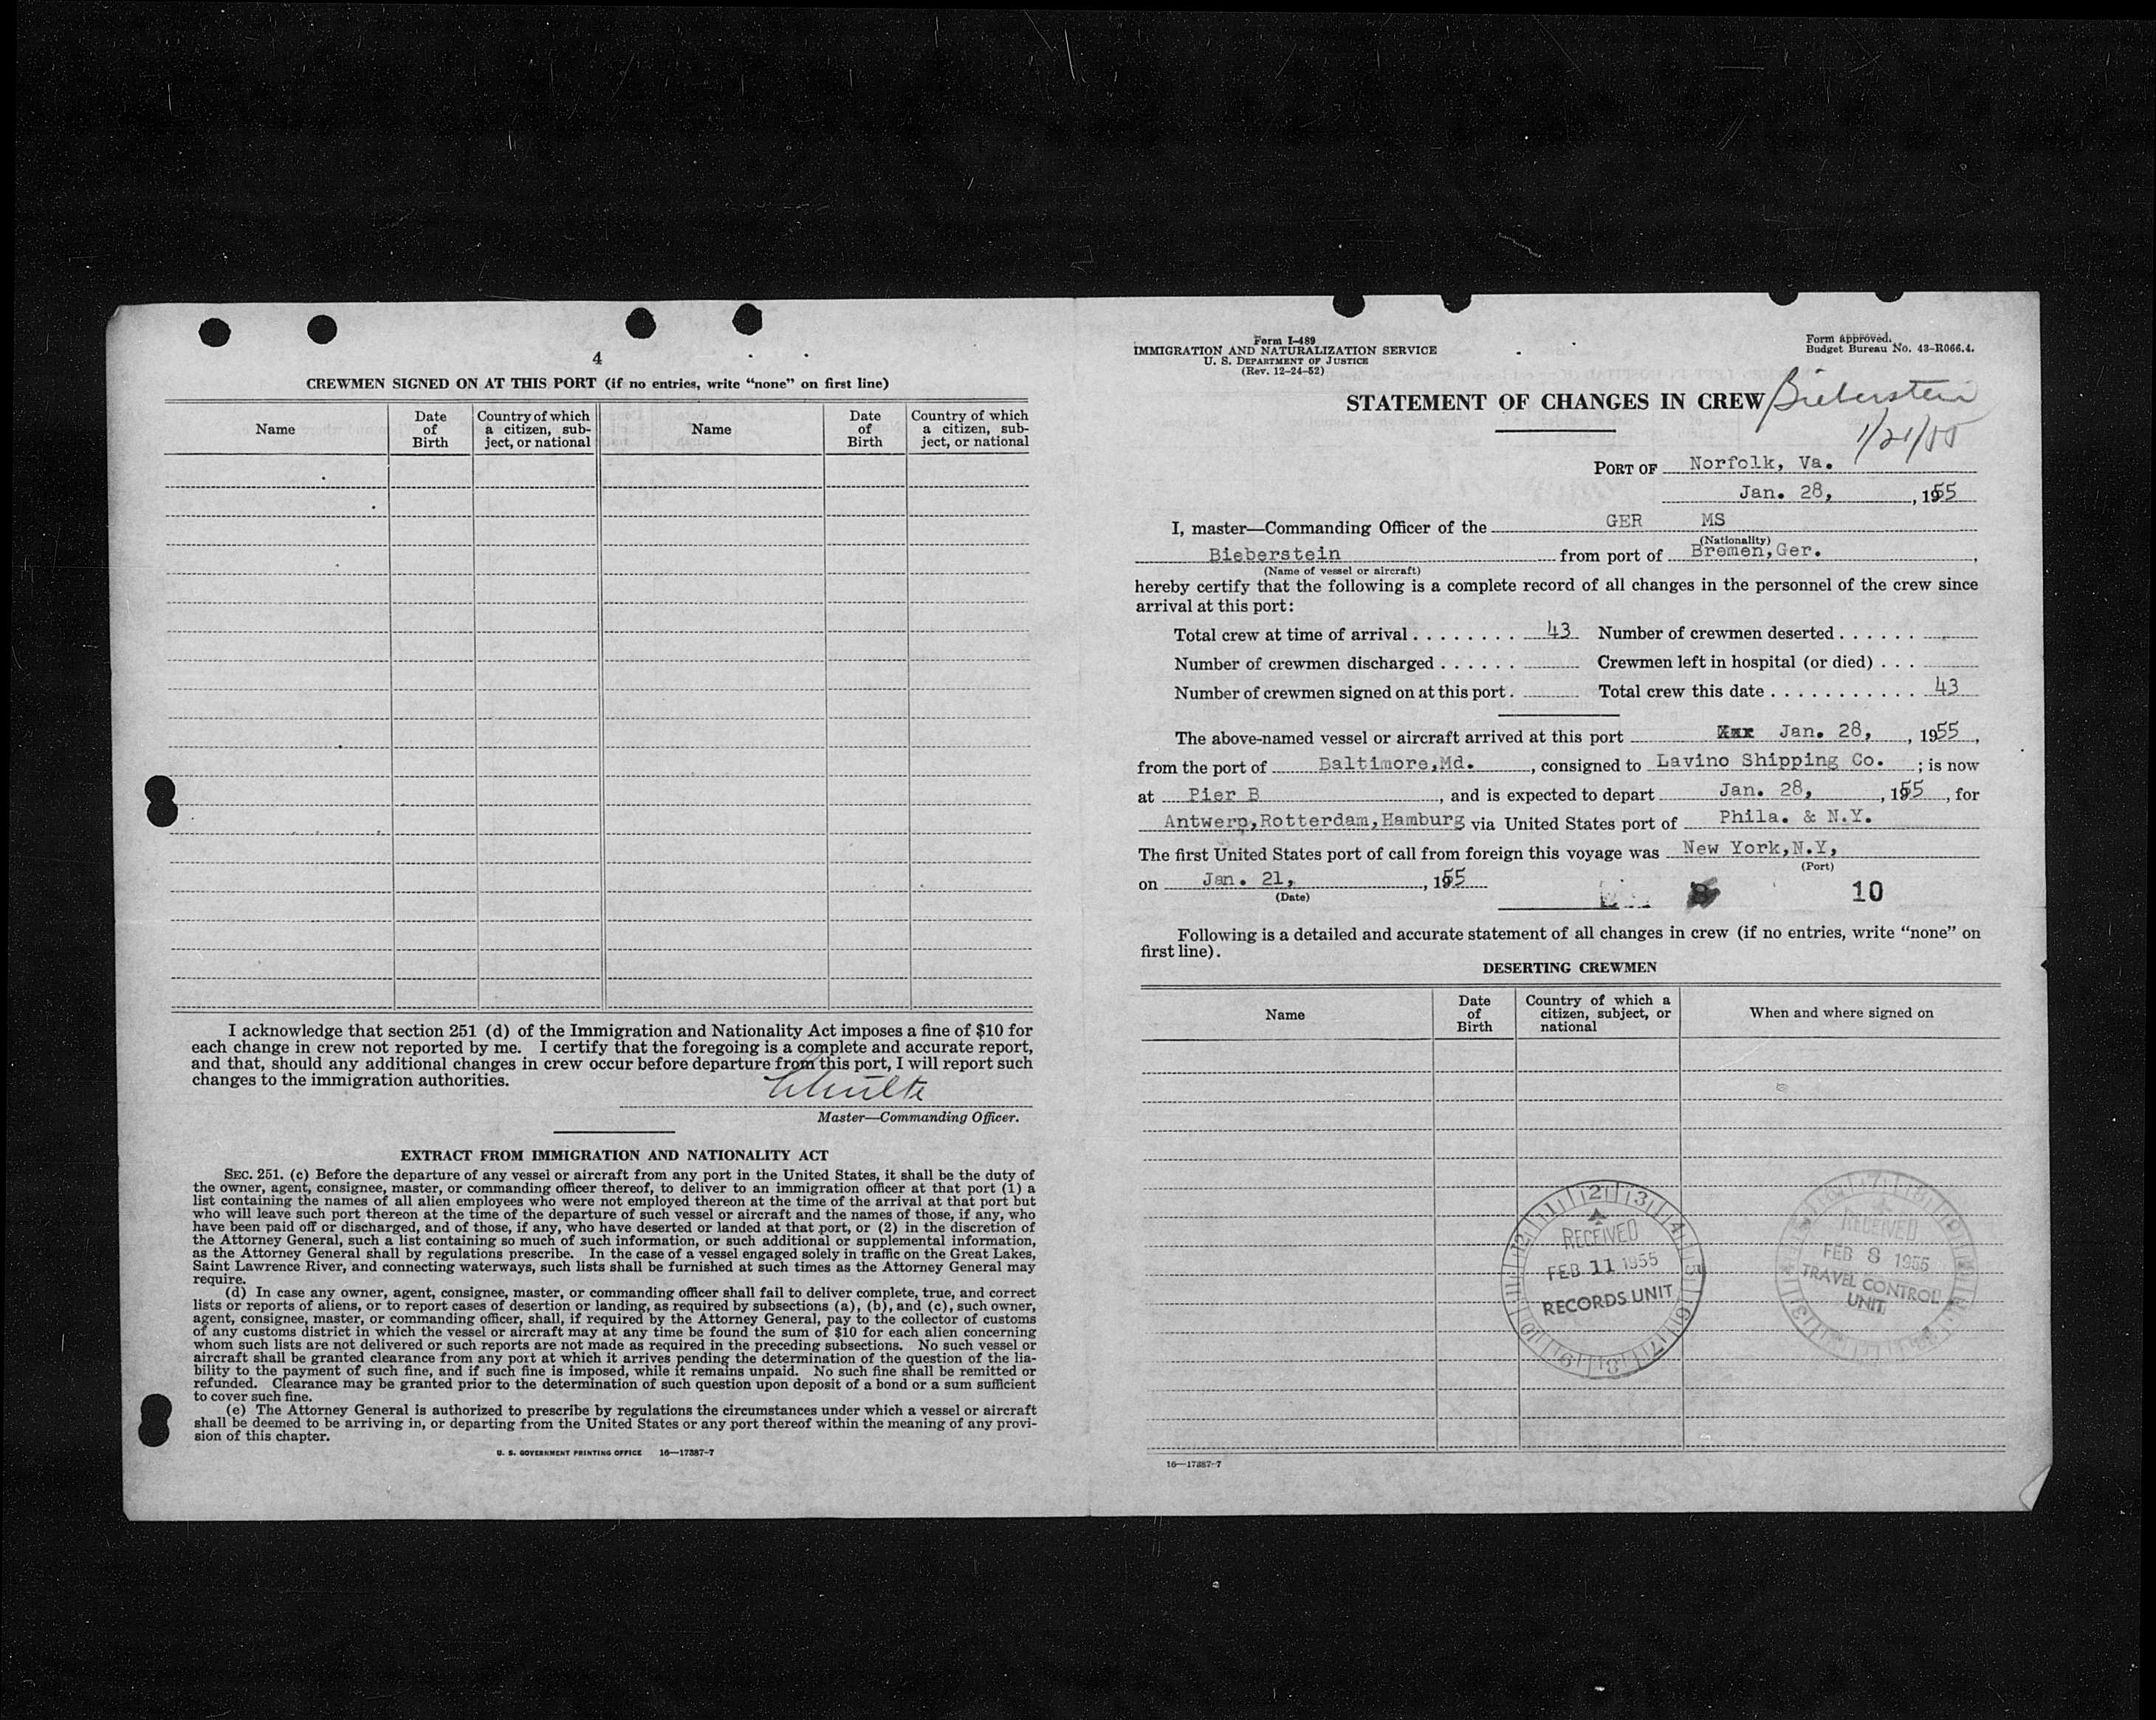 4
CREWMEN SIGNED ON AT THIS PORT (if no entries, write "none" on first line)
Name
Date of Birth
Country of which a citizen, sub-ject, or national
Name
Date of Birth
Country of which a citizen, sub-ject, or national
I acknowledge that section 251 (d) of the Immigration and Nationality Act imposes a fine of $10 for
each change in crew not reported by me. I certify that the foregoing is a complete and accurate report,
and that, should any additional changes in crew occur before departure from this port, I will report such
changes to the immigration authorities.
Schulte
Master—Commanding Officer.
EXTRACT FROM IMMIGRATION AND NATIONALITY ACT
SEC. 251. (c) Before the departure of any vessel or aircraft from any port in the United States, it shall be the duty of
the owner, agent, consignee, master, or commanding officer thereof, to deliver to an immigration officer at that port (1) a
list containing the names of all alien employees who were not employed thereon at the time of the arrival at that port but
who will leave such port thereon at the time of the departure of such vessel or aircraft and the names of those, if any, who
have been paid off or discharged, and of those, if any, who have deserted or landed at that port, or (2) in the discretion of
the Attorney General, such a list containing so much of such information, or such additional or supplemental information,
as the Attorney General shall by regulations prescribe. In the case of a vessel engaged solely in traffic on the Great Lakes,
Saint Lawrence River, and connecting waterways, such lists shall be furnished at such times as the Attorney General may
require.
(d) In case any owner, agent, consignee, master, or commanding officer shall fail to deliver complete, true, and correct
lists or reports of aliens, or to report cases of desertion or landing, as required by subsections (a), (b), and (c), such owner,
agent, consignee, master, or commanding officer, shall, if required by the Attorney General, pay to the collector of customs
of any customs district in which the vessel or aircraft may at any time be found the sum of $10 for each alien concerning
whom such lists are not delivered or such reports are not made as required in the preceding subsections. No such vessel or
aircraft shall be granted clearance from any port at which it arrives pending the determination of the question of the lia-
bility to the payment of such fine, and if such fine is imposed, while it remains unpaid. No such fine shall be remitted or
refunded. Clearance may be granted prior to the determination of such question upon deposit of a bond or a sum sufficient
to cover such fine.
(e) The Attorney General is authorized to prescribe by regulations the circumstances under which a vessel or aircraft
shall be deemed to be arriving in, or departing from the United States or any port thereof within the meaning of any provi-
sion of this chapter.
U. S. GOVERNMENT PRINTING OFFICE 16—17387-7
Form I-489
IMMIGRATION AND NATURALIZATION SERVICE
U. S. DEPARTMENT OF JUSTICE
(Rev. 12-24-52)
Form approved.
Budget Bureau No. 43-R066.4.
STATEMENT OF CHANGES IN CREW Bieberstein
1/21/55
PORT OF Norfolk, Va.
Jan. 28, , 1955
I, master—Commanding Officer of the GER MS
(Nationality)
Bieberstein from port of Bremen,Ger. ,
(Name of vessel or aircraft)
hereby certify that the following is a complete record of all changes in the personnel of the crew since
arrival at this port:
Total crew at time of arrival . . . . . . . . 43 Number of crewmen deserted . . . . . .
Number of crewmen discharged . . . . . . Crewmen left in hospital (or died) . . .
Number of crewmen signed on at this port . Total crew this date . . . . . . . . . . . 43
The above-named vessel or aircraft arrived at this port Jan. 28, , 1955 ,
from the port of Baltimore,Md. , consigned to Lavino Shipping Co. ; is now
at Pier B , and is expected to depart Jan. 28, , 1955 , for
Antwerp,Rotterdam,Hamburg via United States port of Phila. & N.Y.
The first United States port of call from foreign this voyage was New York,N.Y,
(Port)
on Jan. 21, , 1955
(Date)
10
Following is a detailed and accurate statement of all changes in crew (if no entries, write "none" on
first line).
DESERTING CREWMEN
Name
Date of Birth
Country of which a citizen, subject, or national
When and where signed on
RECEIVED
FEB 11 1955
RECORDS UNIT
RECEIVED
FEB 8 1955
TRAVEL CONTROL
UNIT
16—17387-7